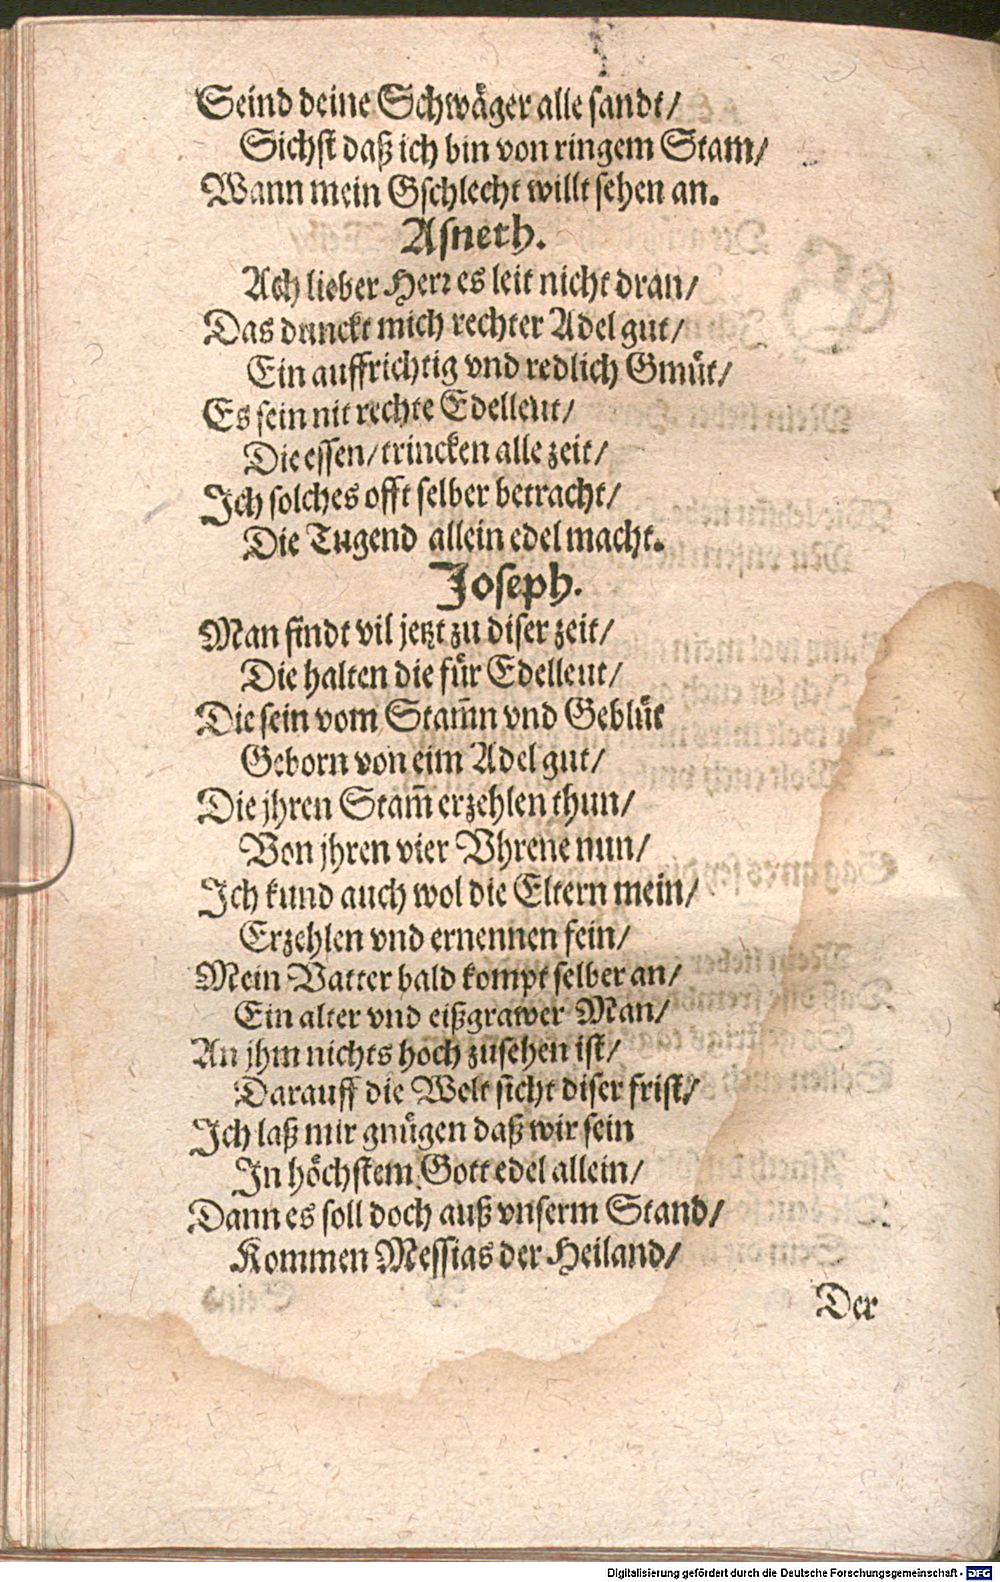 Seind deine Schwäger alle sandt/
Sichst daß ich bin von ringem Stam/
Wann mein Gschlecht willt sehen an.
Asneth.
Ach lieber Herr es leit nicht dran/
Das dunckt mich rechter Adel gut/
Ein auffrichtig vnd redlich Gmüt/
Es sein nit rechte Edelleut/
Die essen/ trincken alle zeit/
Ich solches offt selber betracht/
Die Tugend allein edel macht.
Joseph.
Man findt vil jetzt zu diser zeit/
Die halten die für Edelleut/
Die sein vom Stam̃n vnd Geblüt
Geborn von eim Adel gut/
Die jhren Stam̃ erzehlen thun/
Von jhren vier Vhrene nun/
Ich kund auch wol die Eltern mein/
Erzehlen vnd ernennen fein/
Mein Vatter bald kompt selber an/
Ein alter vnd eißgrawer Man/
An jhm nichts hoch zusehen ist/
Darauff die Welt sicht diser frist/
Ich laß mir gnügen daß wir sein
In höchstem Gott edel allein/
Dann es soll doch auß vnserm Stand/
Kommen Messias der Heiland/
Der
Digitalisierung gefördert durch die Deutsche Forschungsgemeinschaft - DFG